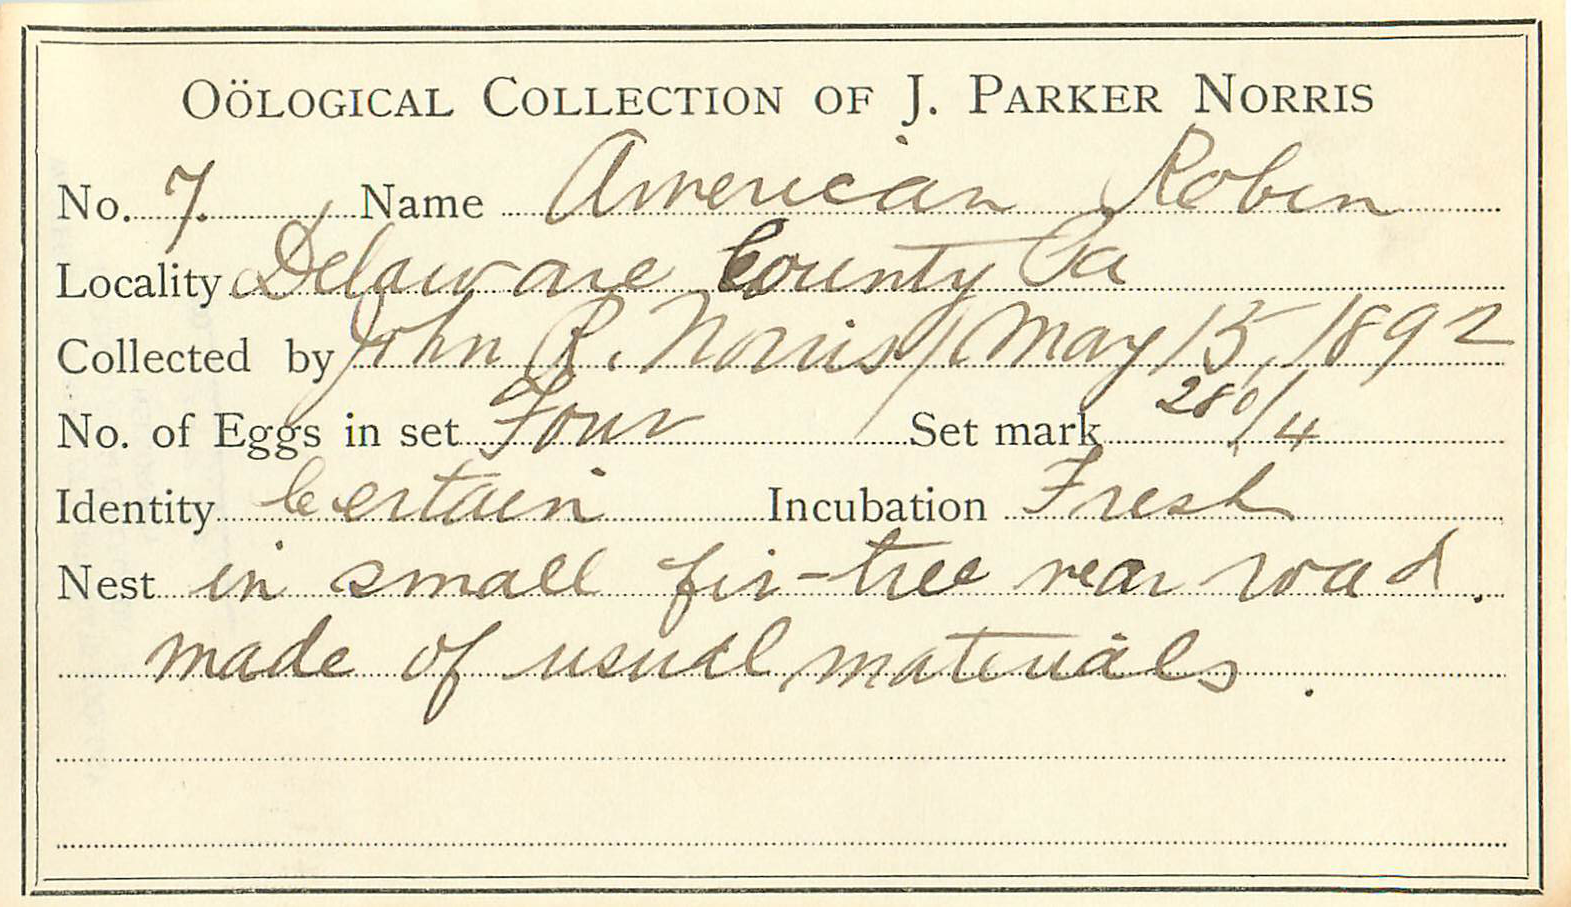 OÖLOGICAL COLLECTION OF J. PARKER NORRIS
No. 7. Name American Robin
Locality Delaware County Pa
Collected by John R. Norris / May 15, 1892
No. of Eggs in set Four Set mark 280/4
Identity Certain Incubation Fresh
Nest in small fir-tree near road.
made of usual materials.